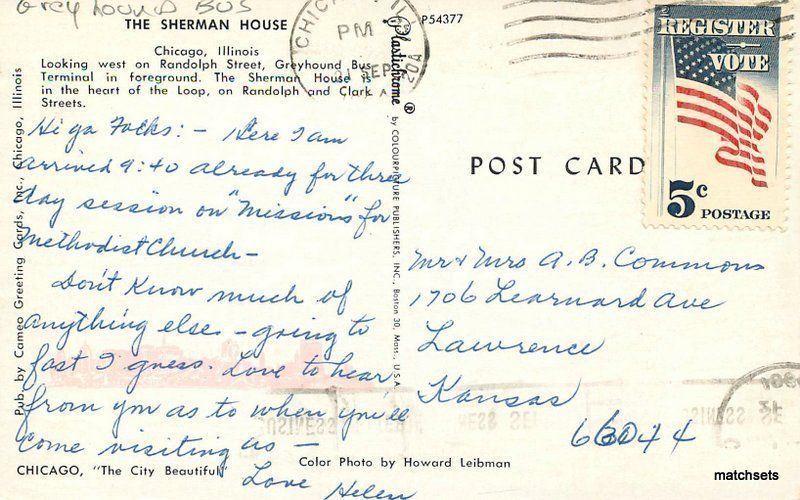 Greyhound BUS
THE SHERMAN HOUSE
Chicago, Illinois
Looking west on Randolph Street, Greyhound Bus
Terminal in foreground. The Sherman House is
in the heart of the Loop, on Randolph and Clark
Streets.
Pub. by Cameo Greeting Cards, Inc., Chicago, Illinois
Hi ya Folks: - Here I am
arrived 9:40 already for three
day session on "Missions" for
Methodist Church -
Don't Know much of
anything else - going to
fast I guess. Love to hear
from you as to when you'll
come visiting us -
Love Helen
CHICAGO, "The City Beautiful"
Color Photo by Howard Leibman
P54377
Plastichrome ® by COLOURPICTURE PUBLISHERS, INC., Boston 30, Mass., U.S.A.
CHICAGO, IL
PM
SEP
POST CARD
REGISTER
VOTE
5c POSTAGE
Mr & Mrs A. B. Commons
1706 Learnard Ave
Lawrence
Kansas
66044
BUSINESS
matchsets